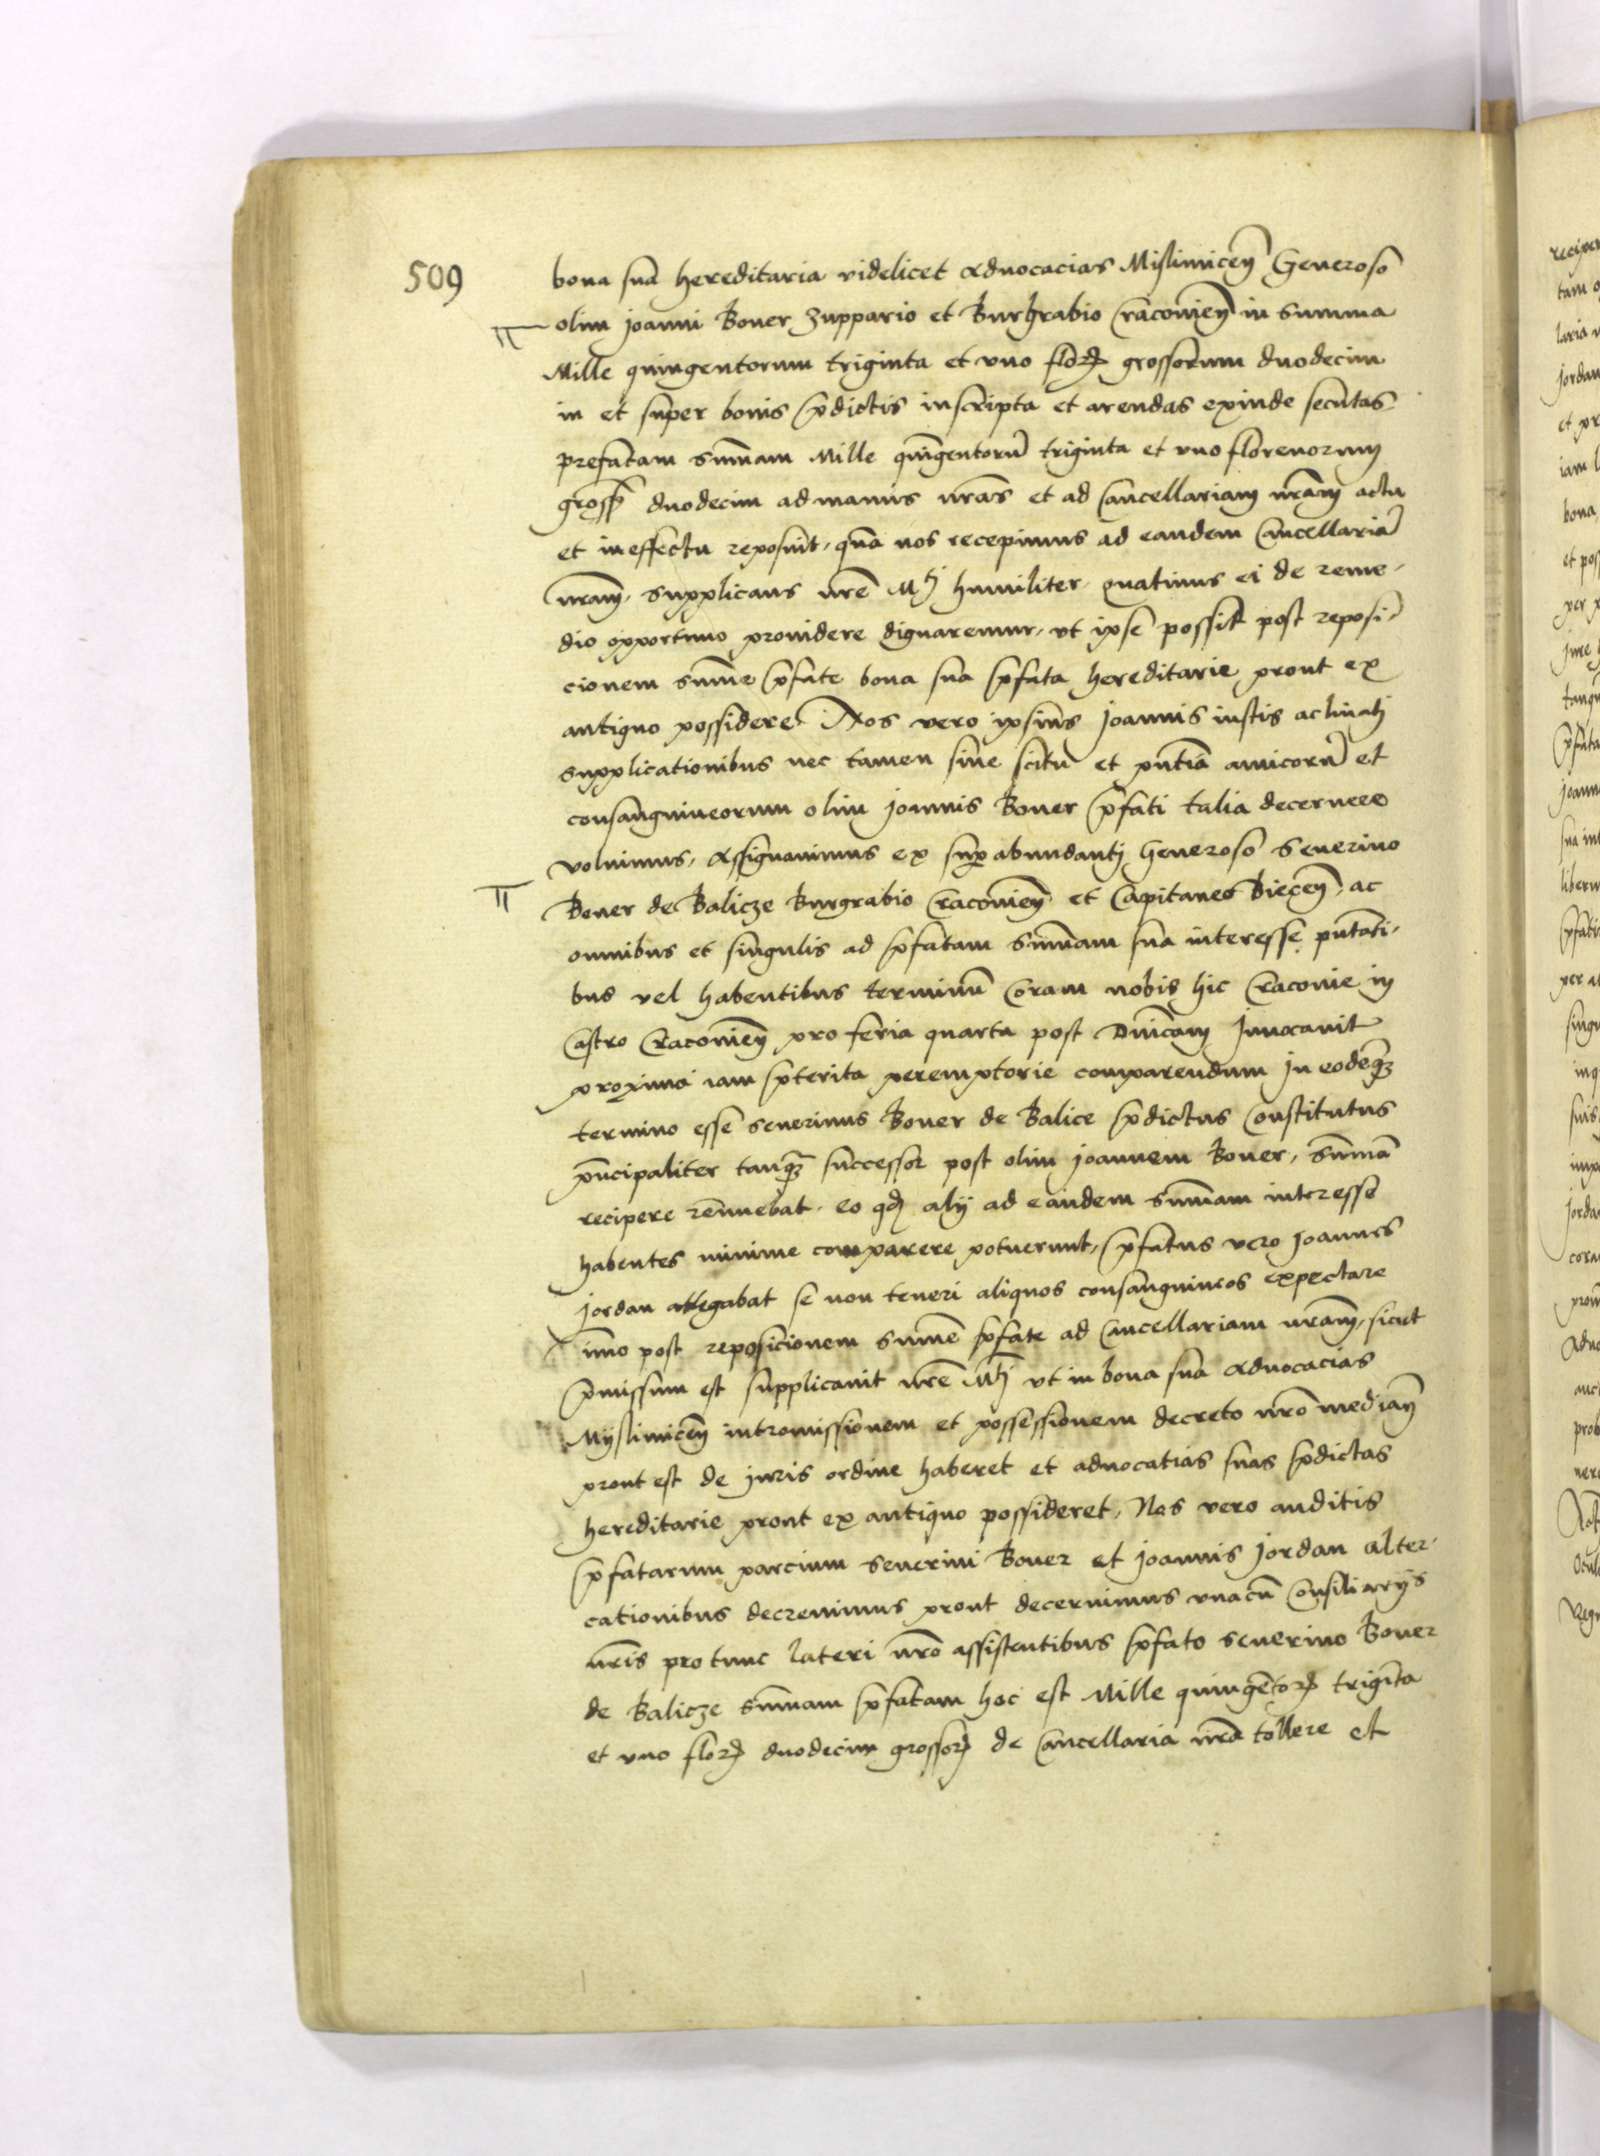 509
bona sua hereditaria videlicet advocacias Mislimiceñ Generoso
olim Joanni Boner zuppario et Burgrabio Cracovieñ in summa
Mille quingentorum triginta et uno floꝝ grossorum duodecim
in et super bonis p̄dictis inscripta et arendas exinde secutas
prefatam sum̄am Mille quīgentorū triginta et uno florenorum
grossoꝝ duodecim ad manus nr̄as et ad Cancellariam nr̄am actu
et in effectu reposuit, quā nos recepimus ad eandem Cancellariā
nr̄am, supplicans nr̄e Mtj humiliter quatinus ei de reme-
dio opportuno providere dignaremur, ut ipse possit post reposi-
cionem sum̄e p̄fate bona sua p̄fata hereditarie prout ex
antiquo possidere Nos vero ipsius Joannis iustis aclinati
supplicationibus nec tamen sine scitu et pn̄tia amicorū et
consanguineorum olim Joannis Boner p̄fati talia decernere
voluimus, Assignavimus ex superabundanti Generoso Severino
Boner de Balicze Burgrabio Cracovieñ et Capitaneo Bieceñ, ac
omnibus et singulis ad p̄fatam sum̄am sua interesse putati-
bus vel habentibus terminū Coram nobis hic Cracovie in
Castro Cracovieñ pro feria quarta post Dn̄icam Invocavit
proxima iam p̄terita peremptorie comparendum In eodemqꝫ
termino esse Severinus Boner de Balice p̄dictus Constitutus
prīcipaliter tanqꝫ successor post olim Joannem Boner, sum̄ā
recipere rennuebat, eo qd alij ad eandem sum̄am interesse
habentes minime comparere potuerunt, p̄fatus vero Joannes
Jordan allegabat se non teneri aliquos consanguineos expectare
im̄o post reposicionem sum̄e p̄fate ad Cancellariam nr̄am, sicut
p̄missum est supplicavit nr̄e Mtj ut in bona sua advocacias
Myslimiceñ intromissionem et possessionem decreto nr̄o mediañ
prout est de iuris ordine haberet et advocatias suas p̄dictas
hereditarie prout ex antiquo possideret, Nos vero auditis
p̄fatarum parcium Severini Boner et Joannis Jordan alter-
cationibus decrevimus prout decernimus unacū Consiliarijs
nr̄is pro tunc lateri nr̄o assistentibus p̄fato Severino Boner
de Balicze sum̄am p̄fatam hoc est Mille quingētoꝝ triginta
et uno floꝝ duodecim grossoꝝ de Cancellaria nr̄a tollere et